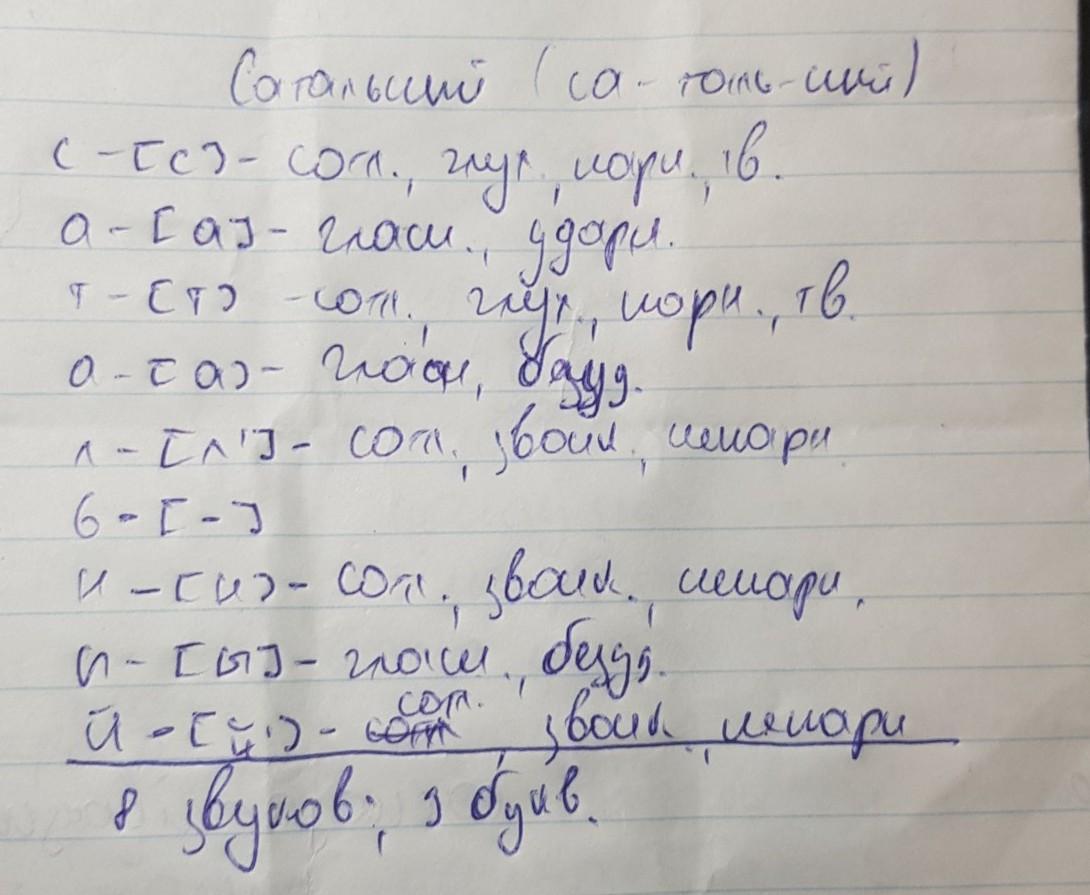 Сатальный (са-таль-ный)
с - [с] - согл., глух., парн., тв.
а - [а] - гласн., ударн.
т - [т] - согл., глух., парн., тв.
а - [а] - гласн, безуд.
л - [л'] - согл., звонк., непарн
ь - [-]
н - [н] - согл., звонк., непарн.
ы - [ы] - гласн., безуд.
й - [й'] - согл., звонк., непарн
8 звуков; 9 букв.